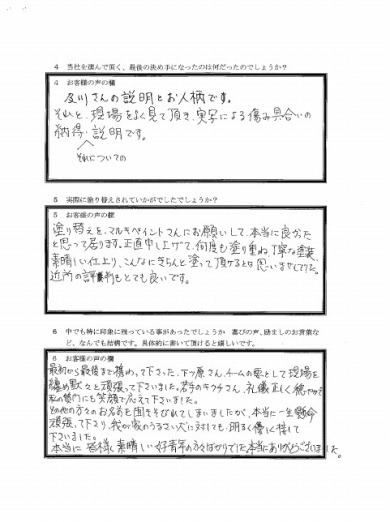 4 当社を選んで頂く、最後の決め手になったのは何だったのでしょうか？
4 お客様の声の欄
及川さんの説明とお人柄です。
それと、現場をよく見て頂き、実写による傷み具合いの
納得、説明です。
それについての
5 実際に塗り替えされていかがでしたでしょうか？
5 お客様の声の欄
塗り替えを、マルキペイントさんにお願いして、本当に良かった
と思って居ります。正直申し上げて、何度も塗り重ね、丁寧な塗装、
素晴しい仕上り、こんなにきちんと塗って頂けるとは思いませんでした。
近所の評判もとても良いです。
6 中でも特に印象に残っている事があったでしょうか 喜びの声、励ましのお言葉な
ど、なんでも結構です。具体的に書いて頂けると嬉しいです。
6 お客様の声の欄
最初から最後まで携わって下さった、下ツ原さん、チームの要として現場を
纏め黙々と頑張って下さいました。若手のキクチさん、礼儀正しく穏やかで
私の質問にも笑顔で応えて下さいました。
その他の方々のお名前を聞きそびれてしまいましたが、本当に一生懸命
頑張って下さり、我が家のうるさい犬に対しても、明るく優しく接して
下さいました。
本当に皆様、素晴しい好青年の方々ばかりでした。本当にありがとうございました。